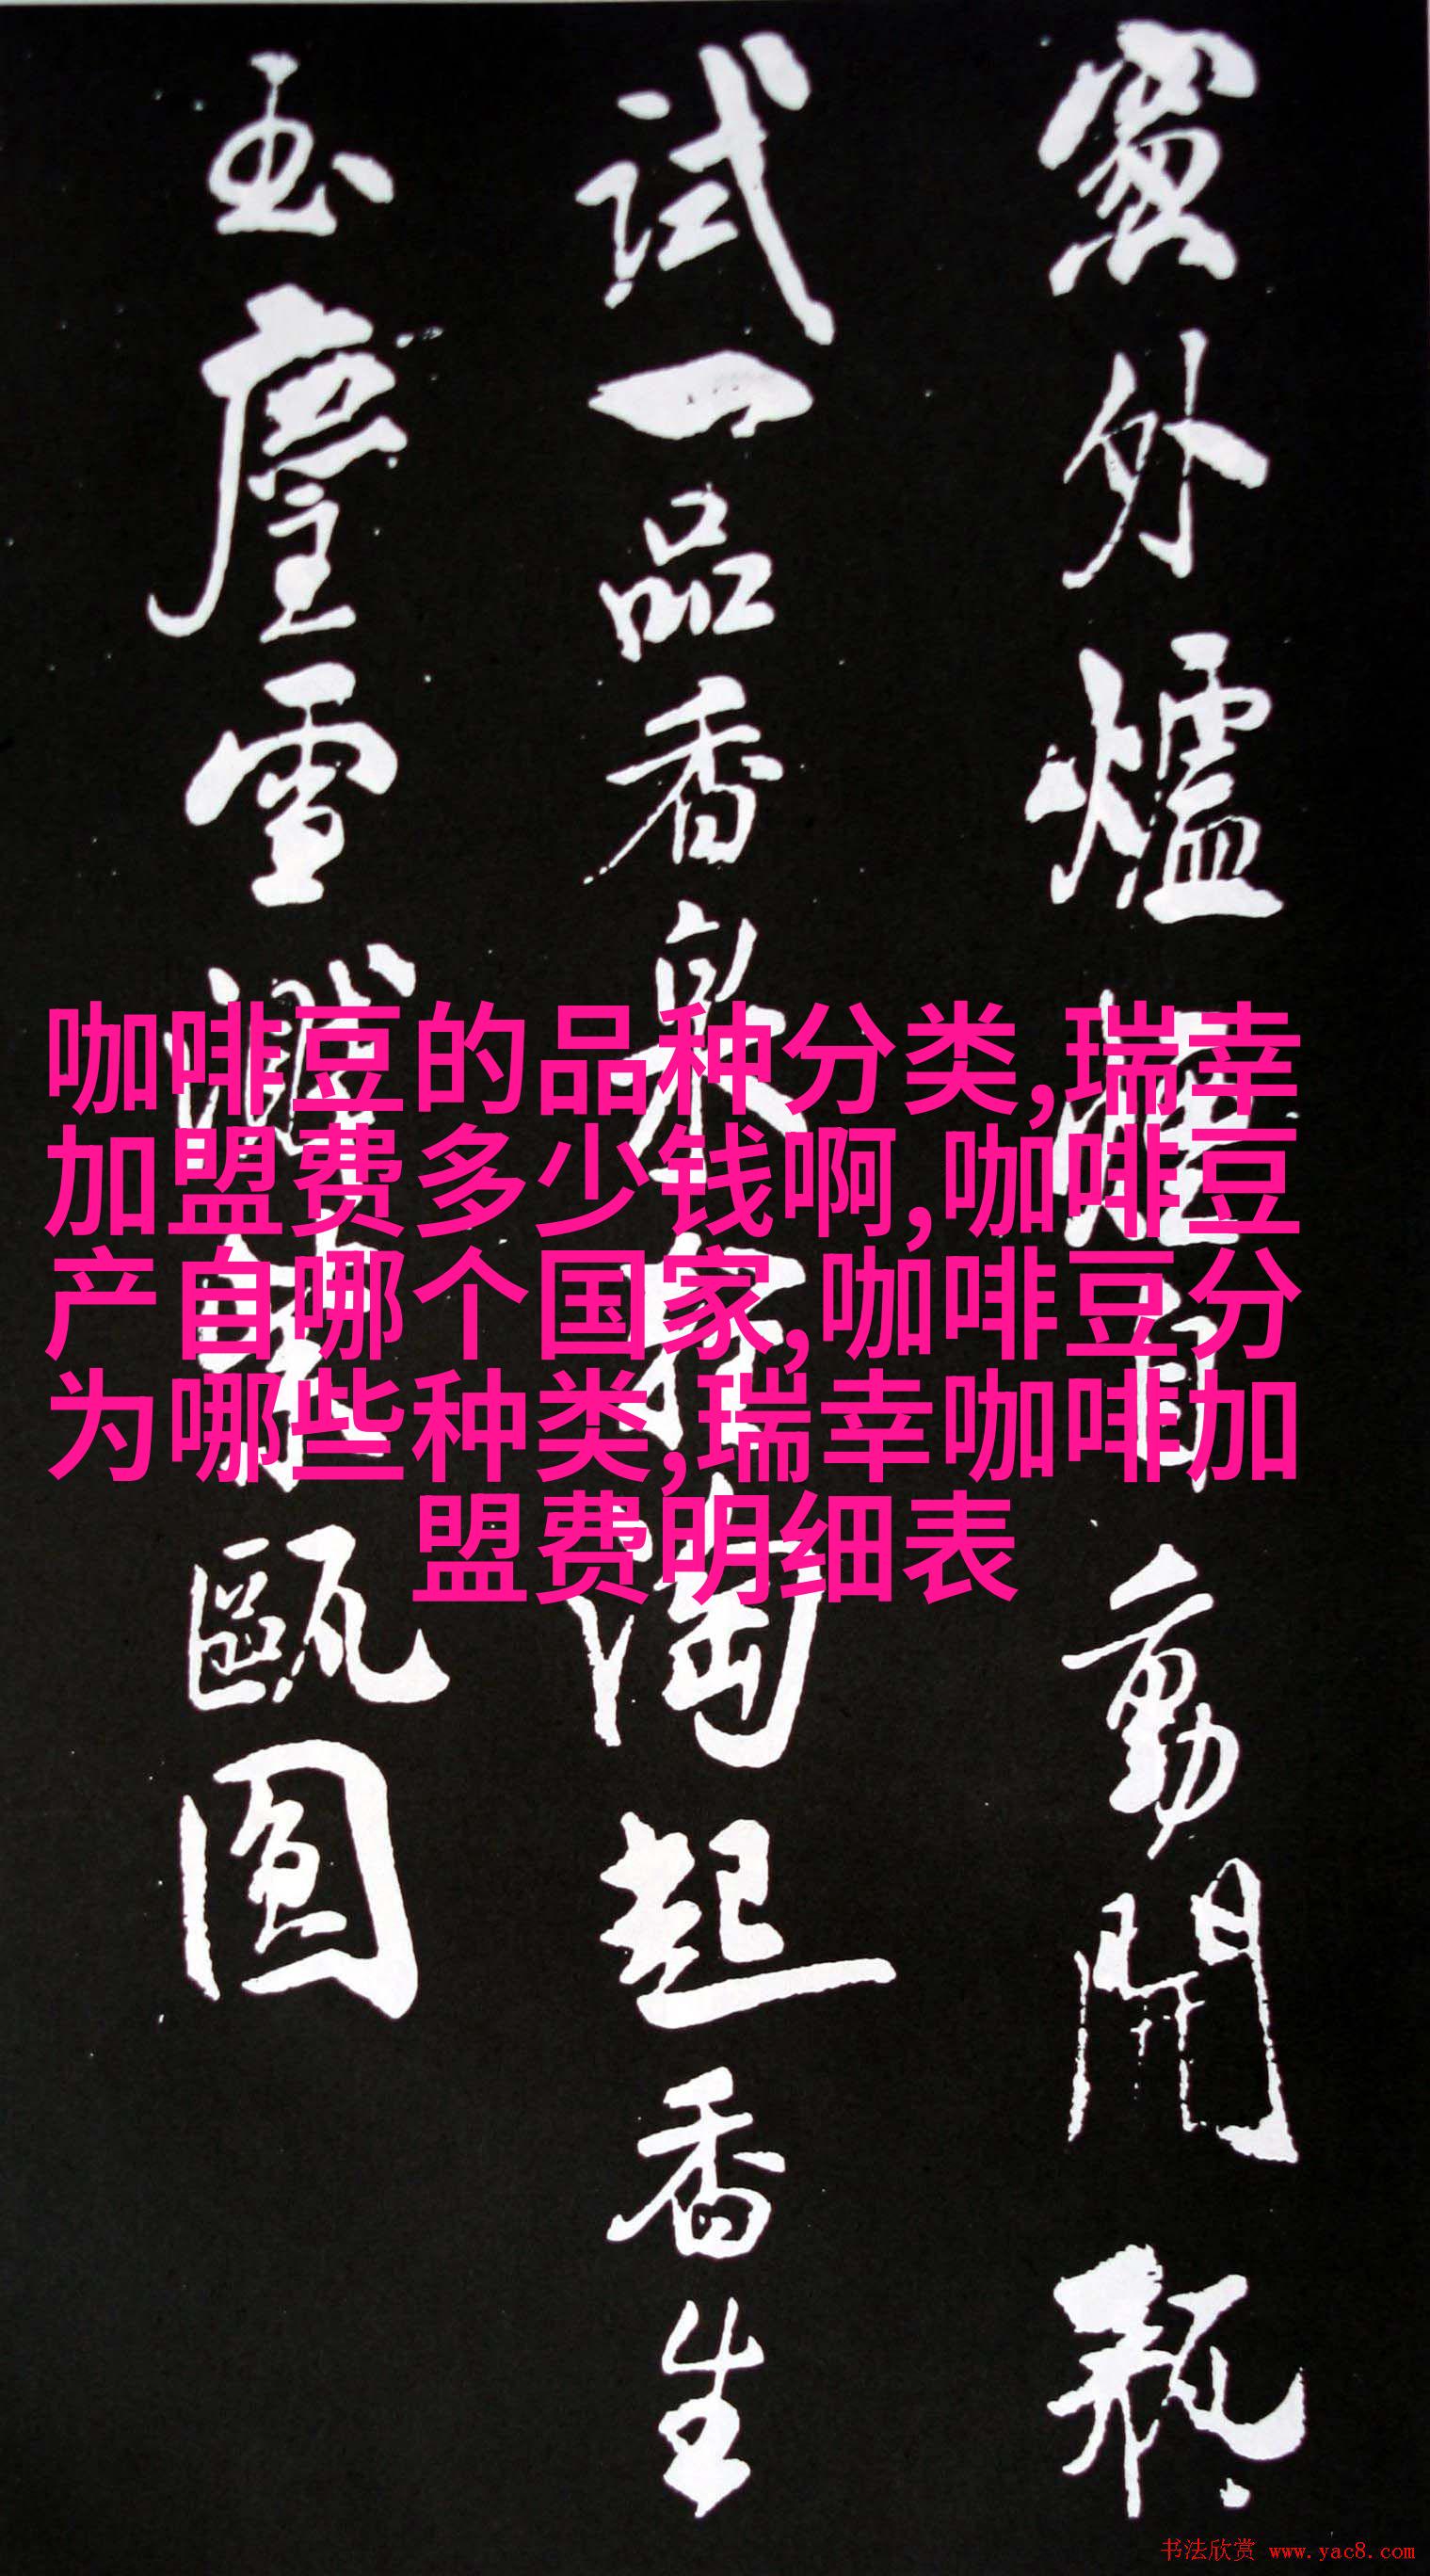 窗外爐煙自動開瓶
試一品香泉淘起香生
玉塵雪濺甌圓
咖啡豆的品种分类,瑞幸
加盟费多少钱啊,咖啡豆
产自哪个国家,咖啡豆分
为哪些种类,瑞幸咖啡加
盟费明细表
书法欣赏 www.yac8.com